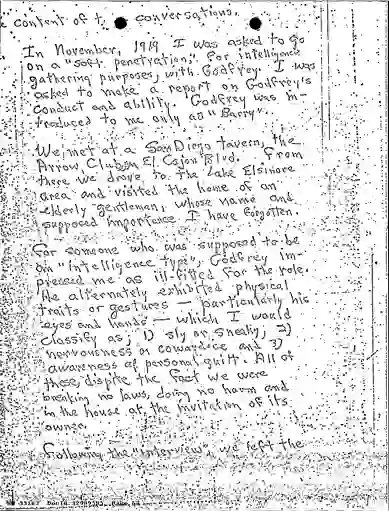 content of t conversations.
In November, 1919 I was asked to go
on a "soft penetration," for intelligence
gathering purposes, with Godfrey. I was
asked to make a report on Godfrey's
conduct and ability. Godfrey was in-
troduced to me only as "Barry".
We met at a San Diego tavern, the
Arrow Club on El Cajon Blvd. From
there we drove to the Lake Elsinore
area and visited the home of an
elderly gentleman, whose name and
supposed importance I have forgotten.
For someone who was supposed to be
an "intelligence type", Godfrey im-
pressed me as ill-fitted for the role.
He alternately exhibited physical
traits or gestures — particularly his
eyes and hands — which I would
classify as; 1) sly or sneaky, 2)
nervousness or cowardice and 3)
awareness of personal guilt. All of
these, dispite the fact we were
breaking no laws, doing no harm and
in the house at the invitation of its
owner.
Following the "interview", we left the